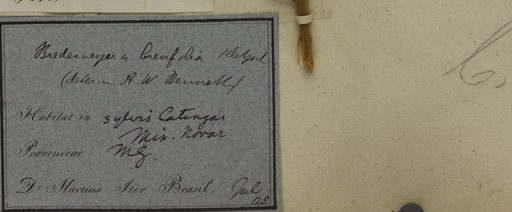 Bredemeyera brevifolia Klotzsch
(determ. A. W. Bennett)
Habitat in sylvis Catingas
Min. Novar
Provinciae M.G.
Dr. Martius Iter Brasil. Jul